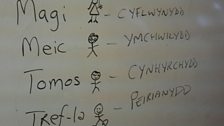 Magi - CYFLWYNYDD
Meic - YMCHWILYDD
Tomos - CYNHYRCHYDD
Tref-la - PEIRIANYDD